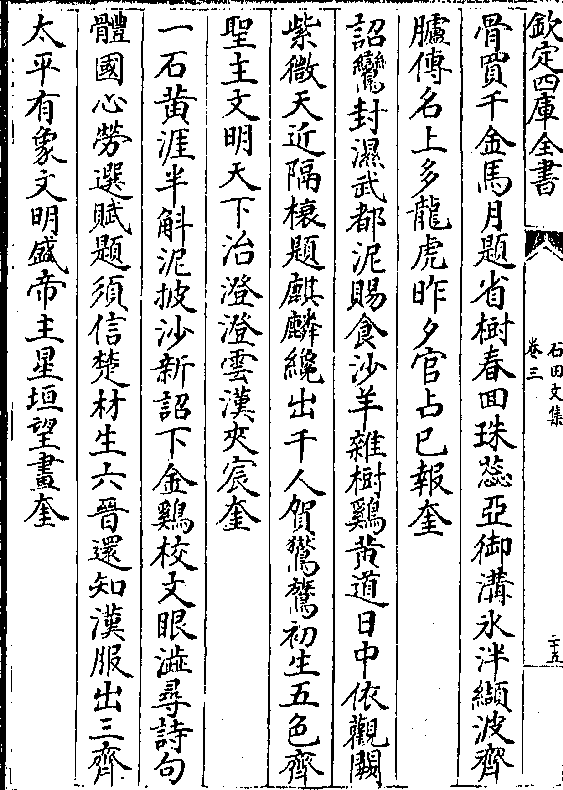 欽定四庫全書
石田文集
卷三
二十五
骨買千金馬月題省樹春回珠蕊亞御溝氷泮纈波齊
臚傳名上多龍虎昨夕官占已報奎
詔鸞封濕武都泥賜食沙羊雜樹鷄黄道日中依觀闕
紫微天近隔榱題麒麟纔出千人賀鸑鷟初生五色齊
聖主文明天下治澄澄雲漢夾宸奎
一石黄涯半斛泥披沙新詔下金鷄校文眼澁尋詩句
體國心勞選賦題須信楚材生六晉還知漢服出三齊
太平有象文明盛帝主星垣望畫奎